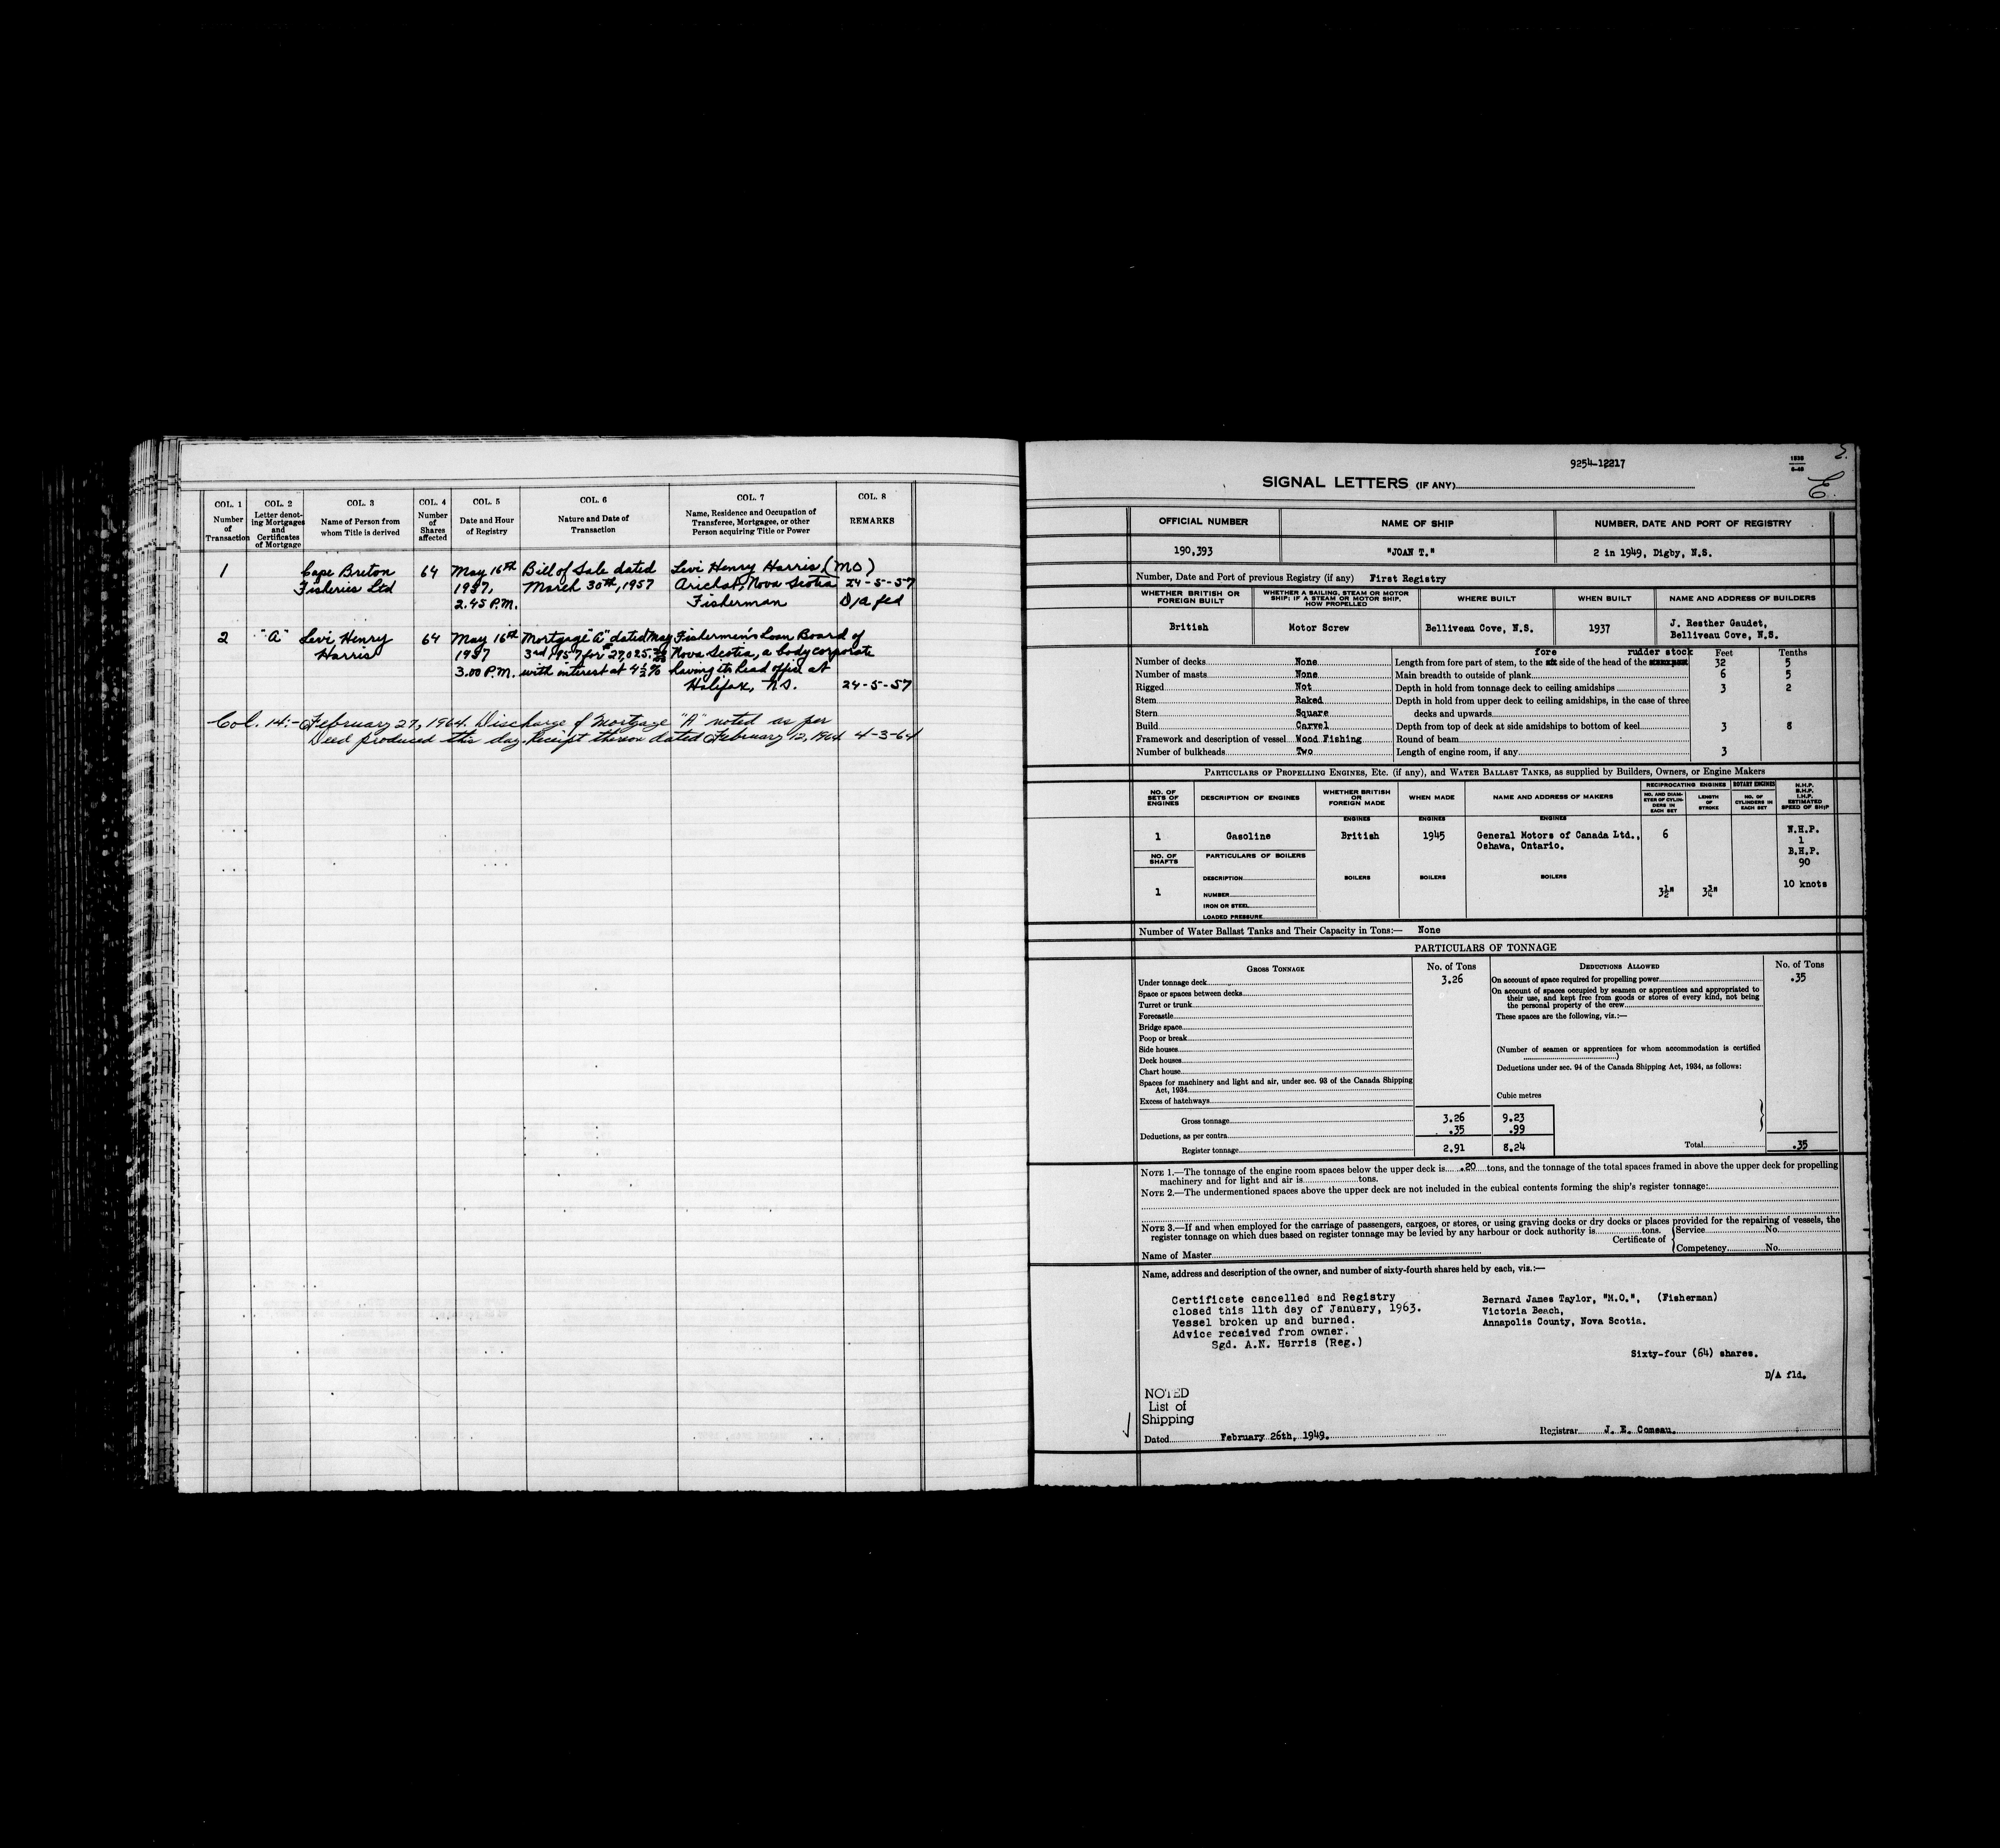 COL. 1 COL. 2 COL. 3 COL. 4 COL. 5 COL. 6 COL. 7 COL. 8
Number of Transaction
Letter denoting Mortgages and Certificates of Mortgage
Name of Person from whom Title is derived
Number of Shares affected
Date and Hour of Registry
Nature and Date of Transaction
Name, Residence and Occupation of Transferee, Mortgagee, or other Person acquiring Title or Power
REMARKS
1 Cape Breton 64 May 16th Bill of Sale dated Levi Henry Harris (MO)
Fisheries Ltd 1957, March 30th, 1957 Arichat, Nova Scotia 24-5-57
2.45 P.M. Fisherman D/A fld
2 "A" Levi Henry 64 May 16th Mortgage "A" dated May Fishermen's Loan Board of
Harris 1957 3rd 1957 for $27,025. Nova Scotia, a body corporate
3.00 P.M. with interest at 4½% having its head office at
Halifax, N.S. 24-5-57
Col. 14:- February 27, 1964. Discharge of Mortgage "A" noted as per
Deed produced this day. Receipt thereon dated February 12, 1964 4-3-64
2.
C.
9254-12217
SIGNAL LETTERS (IF ANY)
OFFICIAL NUMBER NAME OF SHIP NUMBER, DATE AND PORT OF REGISTRY
190,393 "JOAN T." 2 in 1949, Digby, N.S.
Number, Date and Port of previous Registry (if any) First Registry
WHETHER BRITISH OR FOREIGN BUILT
WHETHER A SAILING, STEAM OR MOTOR SHIP; IF A STEAM OR MOTOR SHIP, HOW PROPELLED
WHERE BUILT
WHEN BUILT
NAME AND ADDRESS OF BUILDERS
British Motor Screw Belliveau Cove, N.S. 1937 J. Resther Gaudet,
Belliveau Cove, N.S.
fore rudder stock Feet Tenths
Number of decks None Length from fore part of stem, to the side of the head of the 32 5
Number of masts None Main breadth to outside of plank 6 5
Rigged Not Depth in hold from tonnage deck to ceiling amidships 3 2
Stem Raked Depth in hold from upper deck to ceiling amidships, in the case of three
Stern Square decks and upwards
Build Carvel Depth from top of deck at side amidships to bottom of keel 3 8
Framework and description of vessel Wood Fishing Round of beam
Number of bulkheads Two Length of engine room, if any 3
PARTICULARS OF PROPELLING ENGINES, ETC. (if any), AND WATER BALLAST TANKS, as supplied by Builders, Owners, or Engine Makers
NO. OF SETS OF ENGINES
DESCRIPTION OF ENGINES
WHETHER BRITISH OR FOREIGN MADE
WHEN MADE
NAME AND ADDRESS OF MAKERS
RECIPROCATING ENGINES ROTARY ENGINES
NO. AND DIAMETER OF CYLINDERS IN EACH SET
LENGTH OF STROKE
NO. OF CYLINDERS IN EACH SET
N.H.P. B.H.P. I.H.P. ESTIMATED SPEED OF SHIP
ENGINES ENGINES ENGINES
1 Gasoline British 1945 General Motors of Canada Ltd., 6 N.H.P.
Oshawa, Ontario. 1
NO. OF SHAFTS PARTICULARS OF BOILERS B.H.P.
90
DESCRIPTION BOILERS BOILERS BOILERS
10 knots
1 NUMBER 3½" 3¾"
IRON OR STEEL
LOADED PRESSURE
Number of Water Ballast Tanks and Their Capacity in Tons:— None
PARTICULARS OF TONNAGE
GROSS TONNAGE No. of Tons DEDUCTIONS ALLOWED No. of Tons
Under tonnage deck 3.26 On account of space required for propelling power .35
Space or spaces between decks On account of spaces occupied by seamen or apprentices and appropriated to
Turret or trunk their use, and kept free from goods or stores of every kind, not being
the personal property of the crew
Forecastle These spaces are the following, viz.:—
Bridge space
Poop or break
Side houses (Number of seamen or apprentices for whom accommodation is certified
Deck houses )
Chart house Deductions under sec. 94 of the Canada Shipping Act, 1934, as follows:
Spaces for machinery and light and air, under sec. 93 of the Canada Shipping
Act, 1934
Excess of hatchways Cubic metres
Gross tonnage 3.26 9.23
Deductions, as per contra .35 .99
Register tonnage 2.91 8.24 Total .35
NOTE 1.—The tonnage of the engine room spaces below the upper deck is .20 tons, and the tonnage of the total spaces framed in above the upper deck for propelling
machinery and for light and air is tons.
NOTE 2.—The undermentioned spaces above the upper deck are not included in the cubical contents forming the ship's register tonnage:
NOTE 3.—If and when employed for the carriage of passengers, cargoes, or stores, or using graving docks or dry docks or places provided for the repairing of vessels, the
register tonnage on which dues based on register tonnage may be levied by any harbour or dock authority is tons.
Certificate of Service No.
Competency No.
Name of Master
Name, address and description of the owner, and number of sixty-fourth shares held by each, viz.:—
Certificate cancelled and Registry
closed this 11th day of January, 1963.
Vessel broken up and burned.
Advice received from owner.
Sgd. A.N. Herris (Reg.)
Bernard James Taylor, "M.O.", (Fisherman)
Victoria Beach,
Annapolis County, Nova Scotia.
Sixty-four (64) shares.
D/A fld.
NOTED
List of
Shipping
Dated February 26th, 1949. Registrar J. E. Comeau.